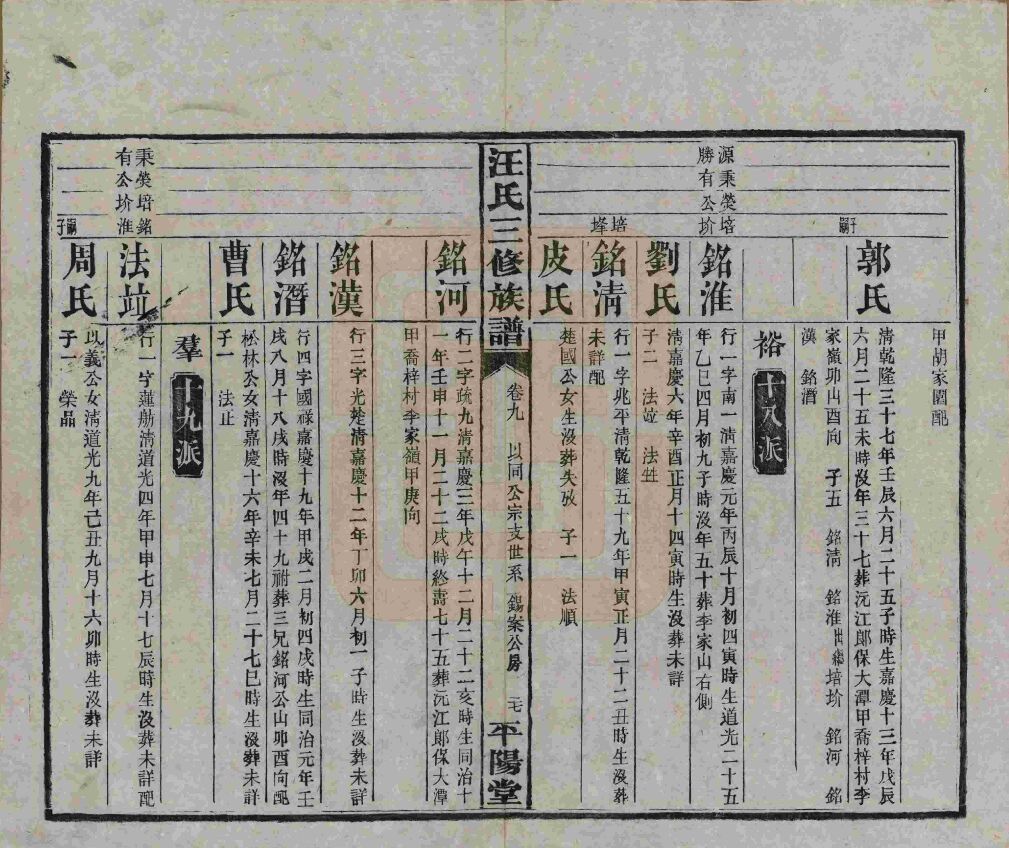 甲胡家園配
郭氏
清乾隆三十七年壬辰六月二十五子時生嘉慶十三年戊辰
六月二十五未時沒年三十七葬沅江郎保大潭甲喬梓村李
家嶺卯山酉向 子五 銘清 銘淮出繼培玠 銘河 銘
漢 銘潛
裕 十八派
源秉熒培
勝有公玠
嗣子
銘淮
行一字南一清嘉慶元年丙辰十月初四寅時生道光二十五
年乙巳四月初九子時沒年五十葬李家山右側
劉氏
清嘉慶六年辛酉正月十四寅時生沒葬未詳
子二 法竝 法甡
培峰
銘清
行一字兆平清乾隆五十九年甲寅正月二十二丑時生沒葬
未詳配
皮氏
楚國公女生沒葬失攷 子一 法順
汪氏三修族譜
卷九 以同公宗支世系 錫案公房 二七
平陽堂
銘河
行二字疏九清嘉慶三年戊午十二月二十二亥時生同治十
一年壬申十一月二十二戌時終壽七十五葬沅江郎保大潭
甲喬梓村李家嶺甲庚向
銘漢
行三字光楚清嘉慶十二年丁卯六月初一子時生沒葬未詳
銘潛
行四字國祿嘉慶十九年甲戌二月初四戌時生同治元年壬
戌八月十八戌時沒年四十九祔葬三兄銘河公山卯酉向配
曹氏
松林公女清嘉慶十六年辛未七月二十七巳時生沒葬未詳
子一 法止
羣 十九派
秉熒培銘
有公玠淮
嗣子
法竝
行一字蓮舫清道光四年甲申七月十七辰時生沒葬未詳配
周氏
以義公女清道光九年己丑九月十六卯時生沒葬未詳
子一 榮品